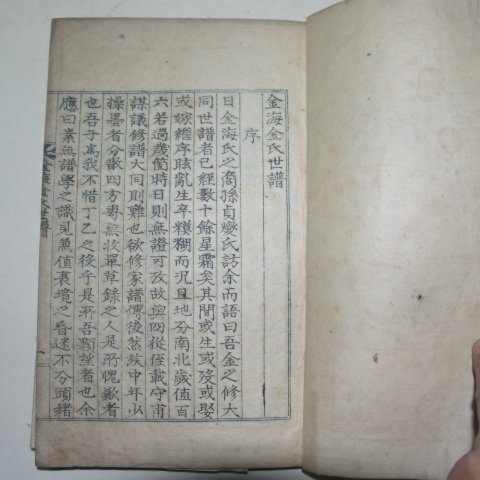 金海金氏世譜
序
日金海氏之裔孫貞燮氏訪余而語曰吾金之修大
同世譜者已經數十餘星霜矣其間或生或歿或娶
或嫁繼序眩亂生卒糢糊而況且地分南北歲値百
六若過幾箇時日則無證可攷故與四從侄載守甫
謀議修譜大同則難也欲修家譜傳後然攷中年以
操墨者分散四方專無收單草錄之人是所愧歎者
也吾子爲我不惜丁乙之後乎是所吾顒望者也余
應曰素無譜學之識見兼値衰境之昏迷不分頭緖
金海金氏世譜
一